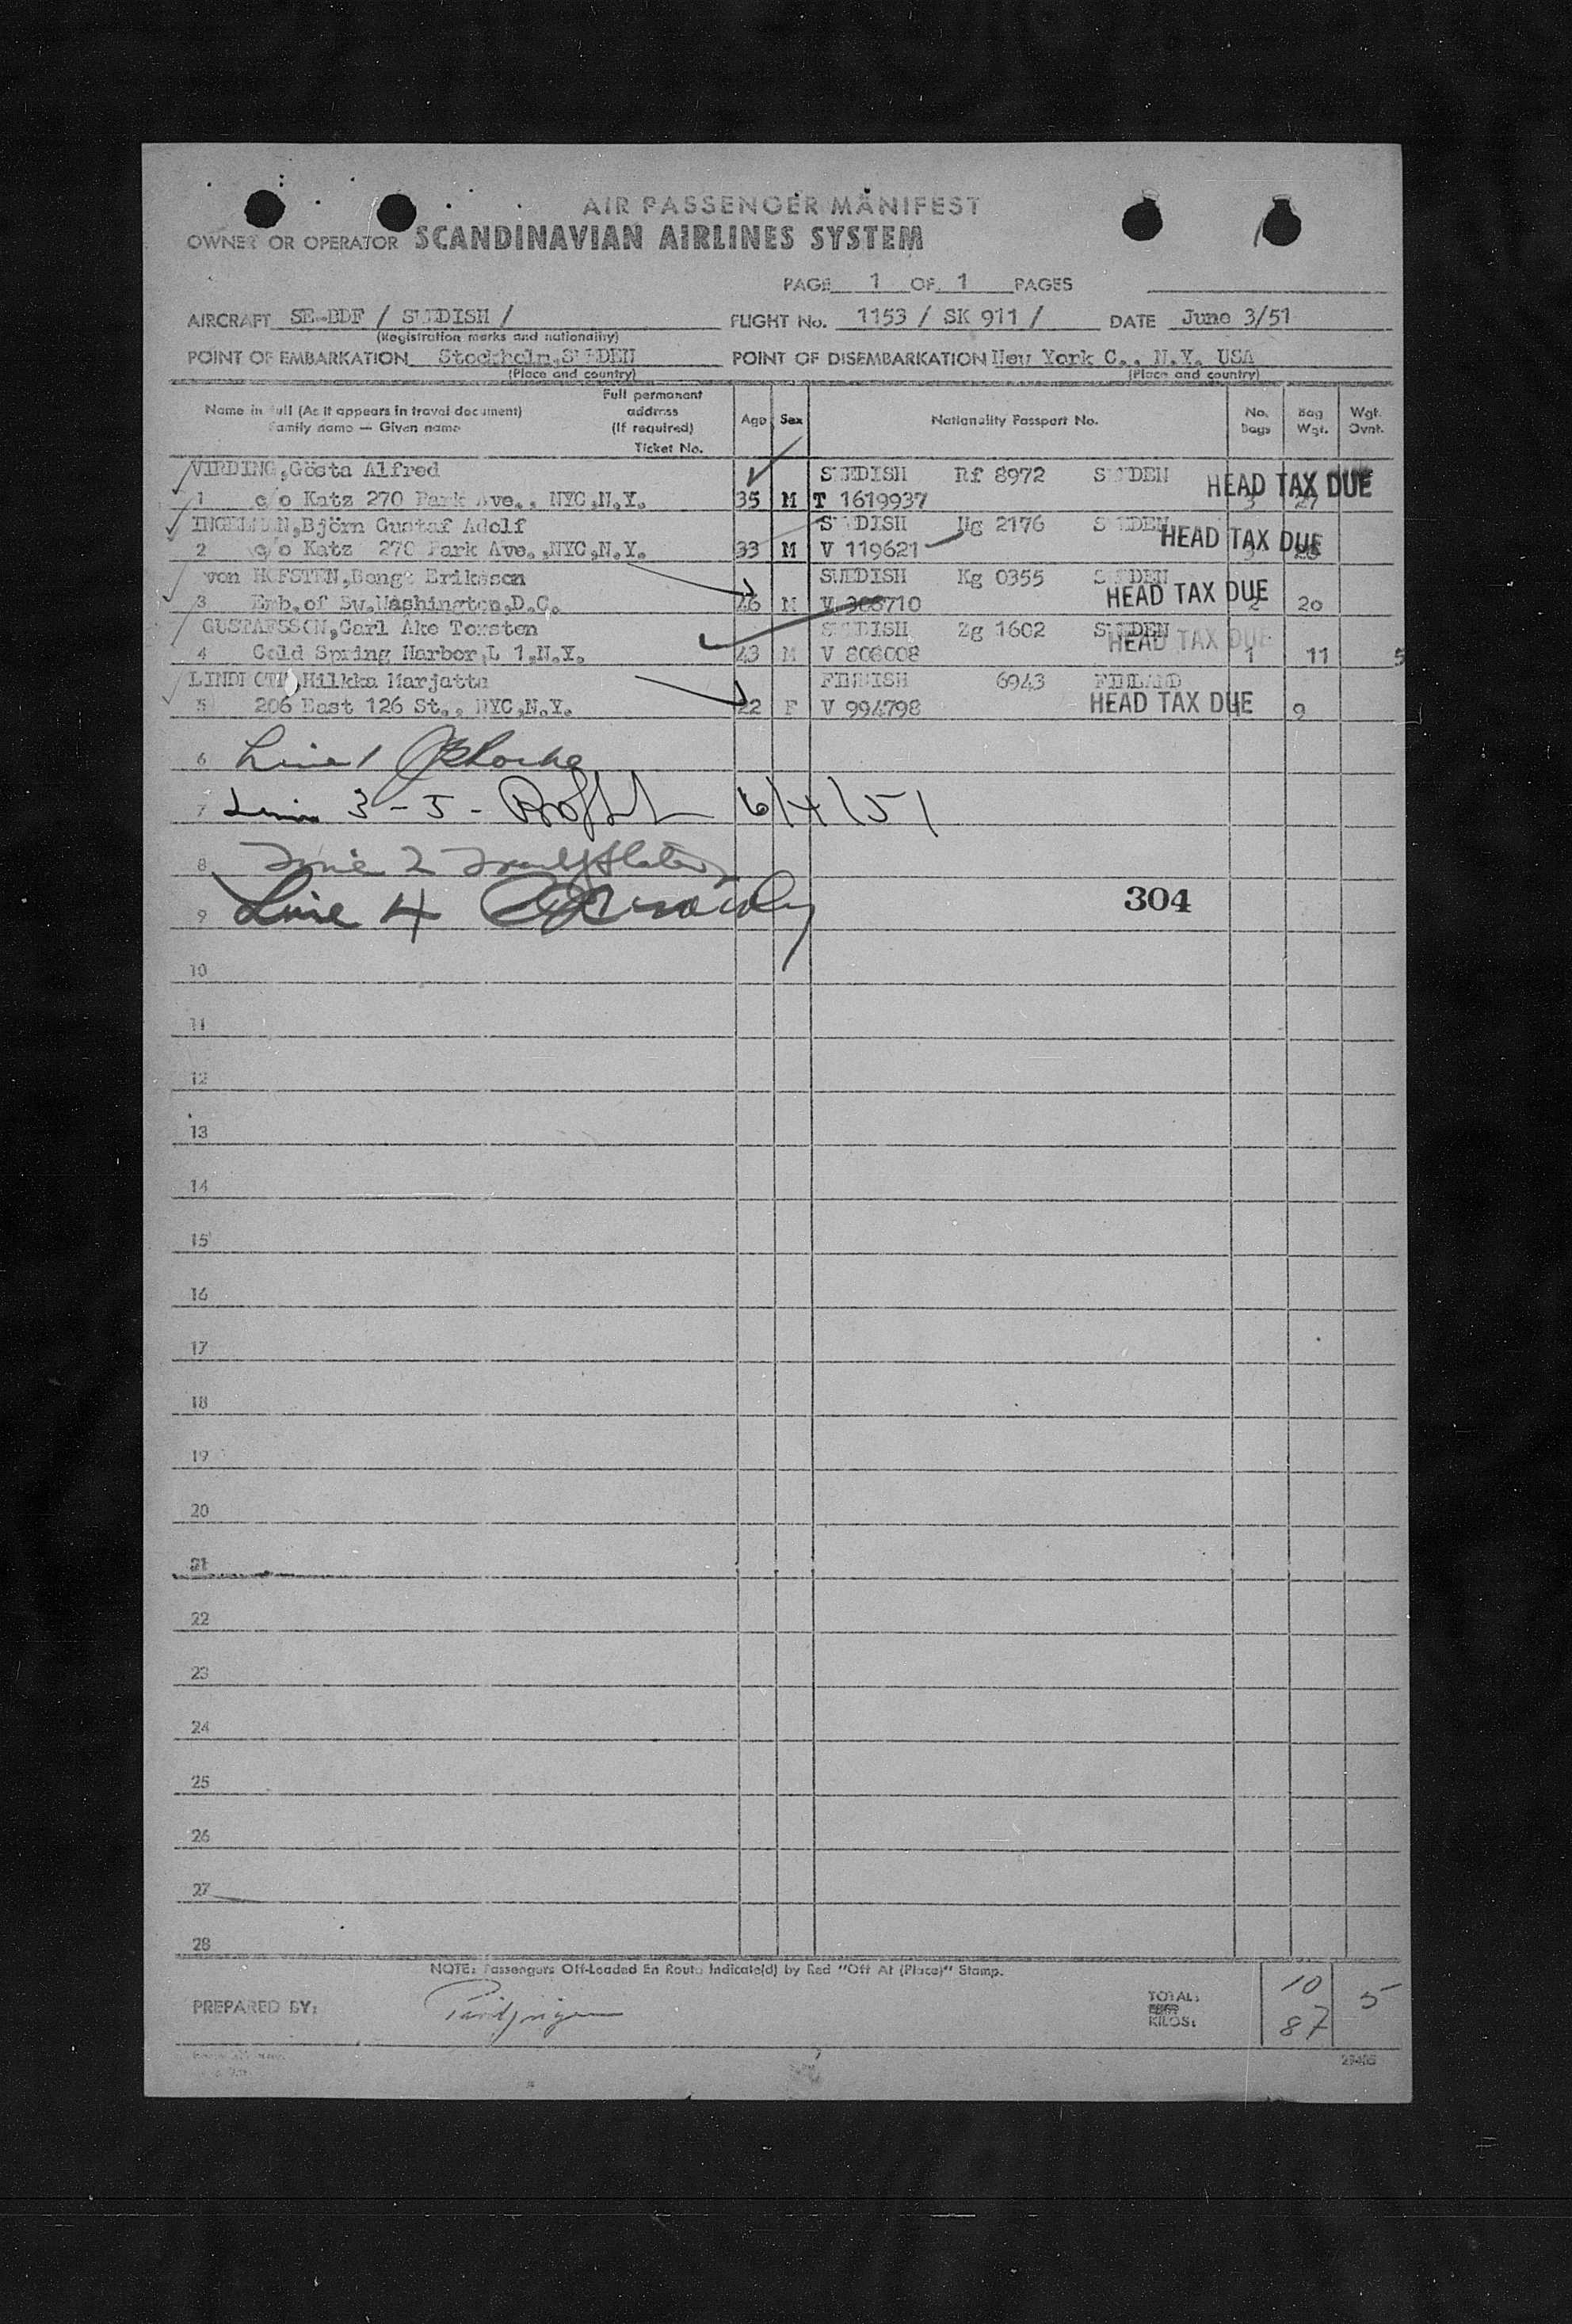 AIR PASSENGER MANIFEST
OWNER OR OPERATOR SCANDINAVIAN AIRLINES SYSTEM
PAGE 1 OF 1 PAGES
AIRCRAFT SE-BDF / SWEDISH / FLIGHT No. 1153 / SK 911 / DATE June 3/51
(Registration marks and nationality)
POINT OF EMBARKATION Stockholm,SWEDEN POINT OF DISEMBARKATION New York C., N.Y. USA
(Place and country) (Place and country)
Name in full (As it appears in travel document) Family name — Given name Full permanent address (If required) Ticket No. Age Sex Nationality Passport No. No. Bags Bag Wgt. Wgt. Ovnt.
VIRDING,Gösta Alfred SWEDISH Rf 8972 SWEDEN HEAD TAX DUE
1 c/o Katz 270 Park Ave., NYC,N.Y. 35 M T 1619937 3 27
INGELMAN,Björn Gustaf Adolf SWEDISH Ug 2176 SWEDEN HEAD TAX DUE
2 c/o Katz 270 Park Ave.,NYC,N.Y. 33 M V 119621 3
von HOFSTEN,Bengt Eriksson SWEDISH Kg 0355 SWEDEN HEAD TAX DUE
3 Emb.of Sw.Washington,D.C. 26 M V 308710 2 20
GUSTAFSSON,Carl Ake Torsten SWEDISH Zg 1602 SWEDEN HEAD TAX DUE
4 Cold Spring Harbor,L 1,N.Y. 43 M V 808008 1 11 5
Hilkka Marjatta FINNISH 6943 FINLAND HEAD TAX DUE
5 206 East 126 St., NYC,N.Y. 22 F V 994798 1 9
6 Line 1
7 Line 3 - 5 - 6/4/51
8 Line 2
9 Line 4 304
10
11
12
13
14
15
16
17
18
19
20
21
22
23
24
25
26
27
28
NOTE: Passengers Off-Loaded En Route Indicate(d) by Red "Off At (Place)" Stamp.
PREPARED BY: TOTAL: 10 5
KILOS: 87